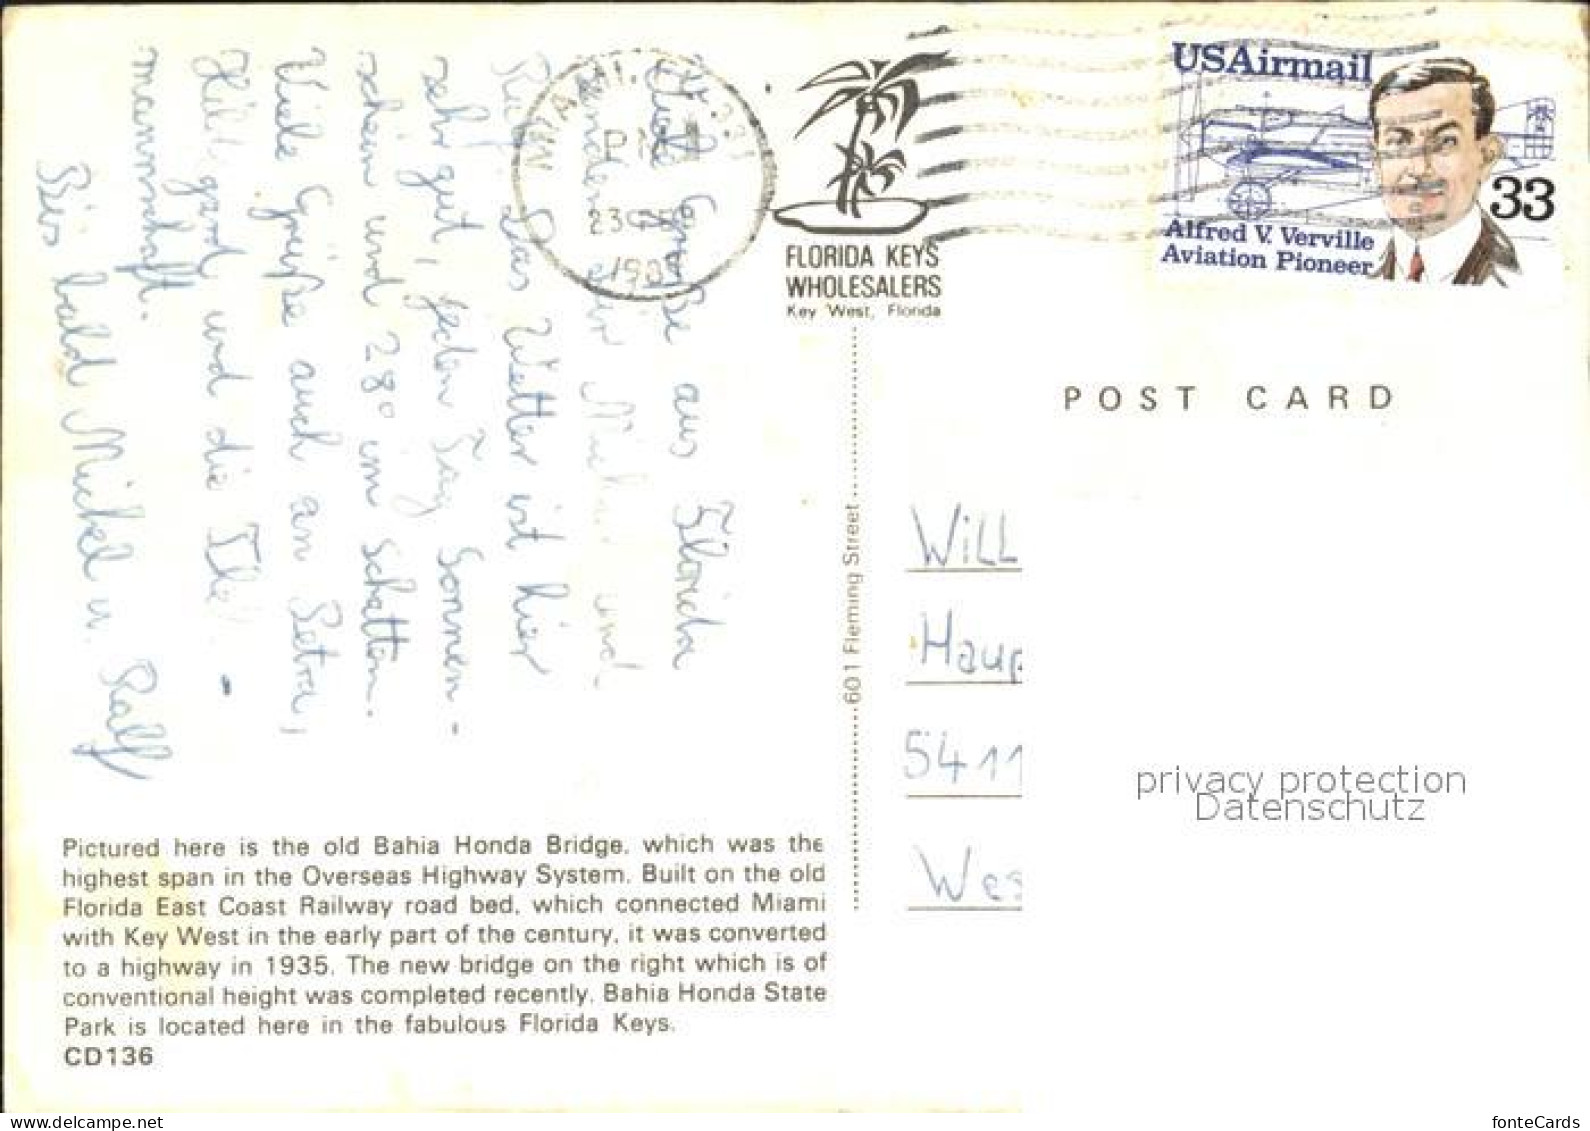 Liebe Grüße aus Florida
senden euch Michael und
Ralf. Das Wetter ist hier
sehr gut, jeden Tag Sonnen-
schein und 28° im Schatten.
Viele Grüße auch an Petra,
Hildegard und die
mannschaft.
Bis bald Michael u. Ralf
MIAMI, FL 331
PM
23
FLORIDA KEYS
WHOLESALERS
Key West, Florida
USAirmail
33
Alfred V. Verville
Aviation Pioneer
601 Fleming Street
POST CARD
WiLL
Haup
5411
Wes
privacy protection
Datenschutz
Pictured here is the old Bahia Honda Bridge, which was the
highest span in the Overseas Highway System. Built on the old
Florida East Coast Railway road bed, which connected Miami
with Key West in the early part of the century, it was converted
to a highway in 1935. The new bridge on the right which is of
conventional height was completed recently. Bahia Honda State
Park is located here in the fabulous Florida Keys.
CD136
www.ansichtskartenversand.com
fonteCards